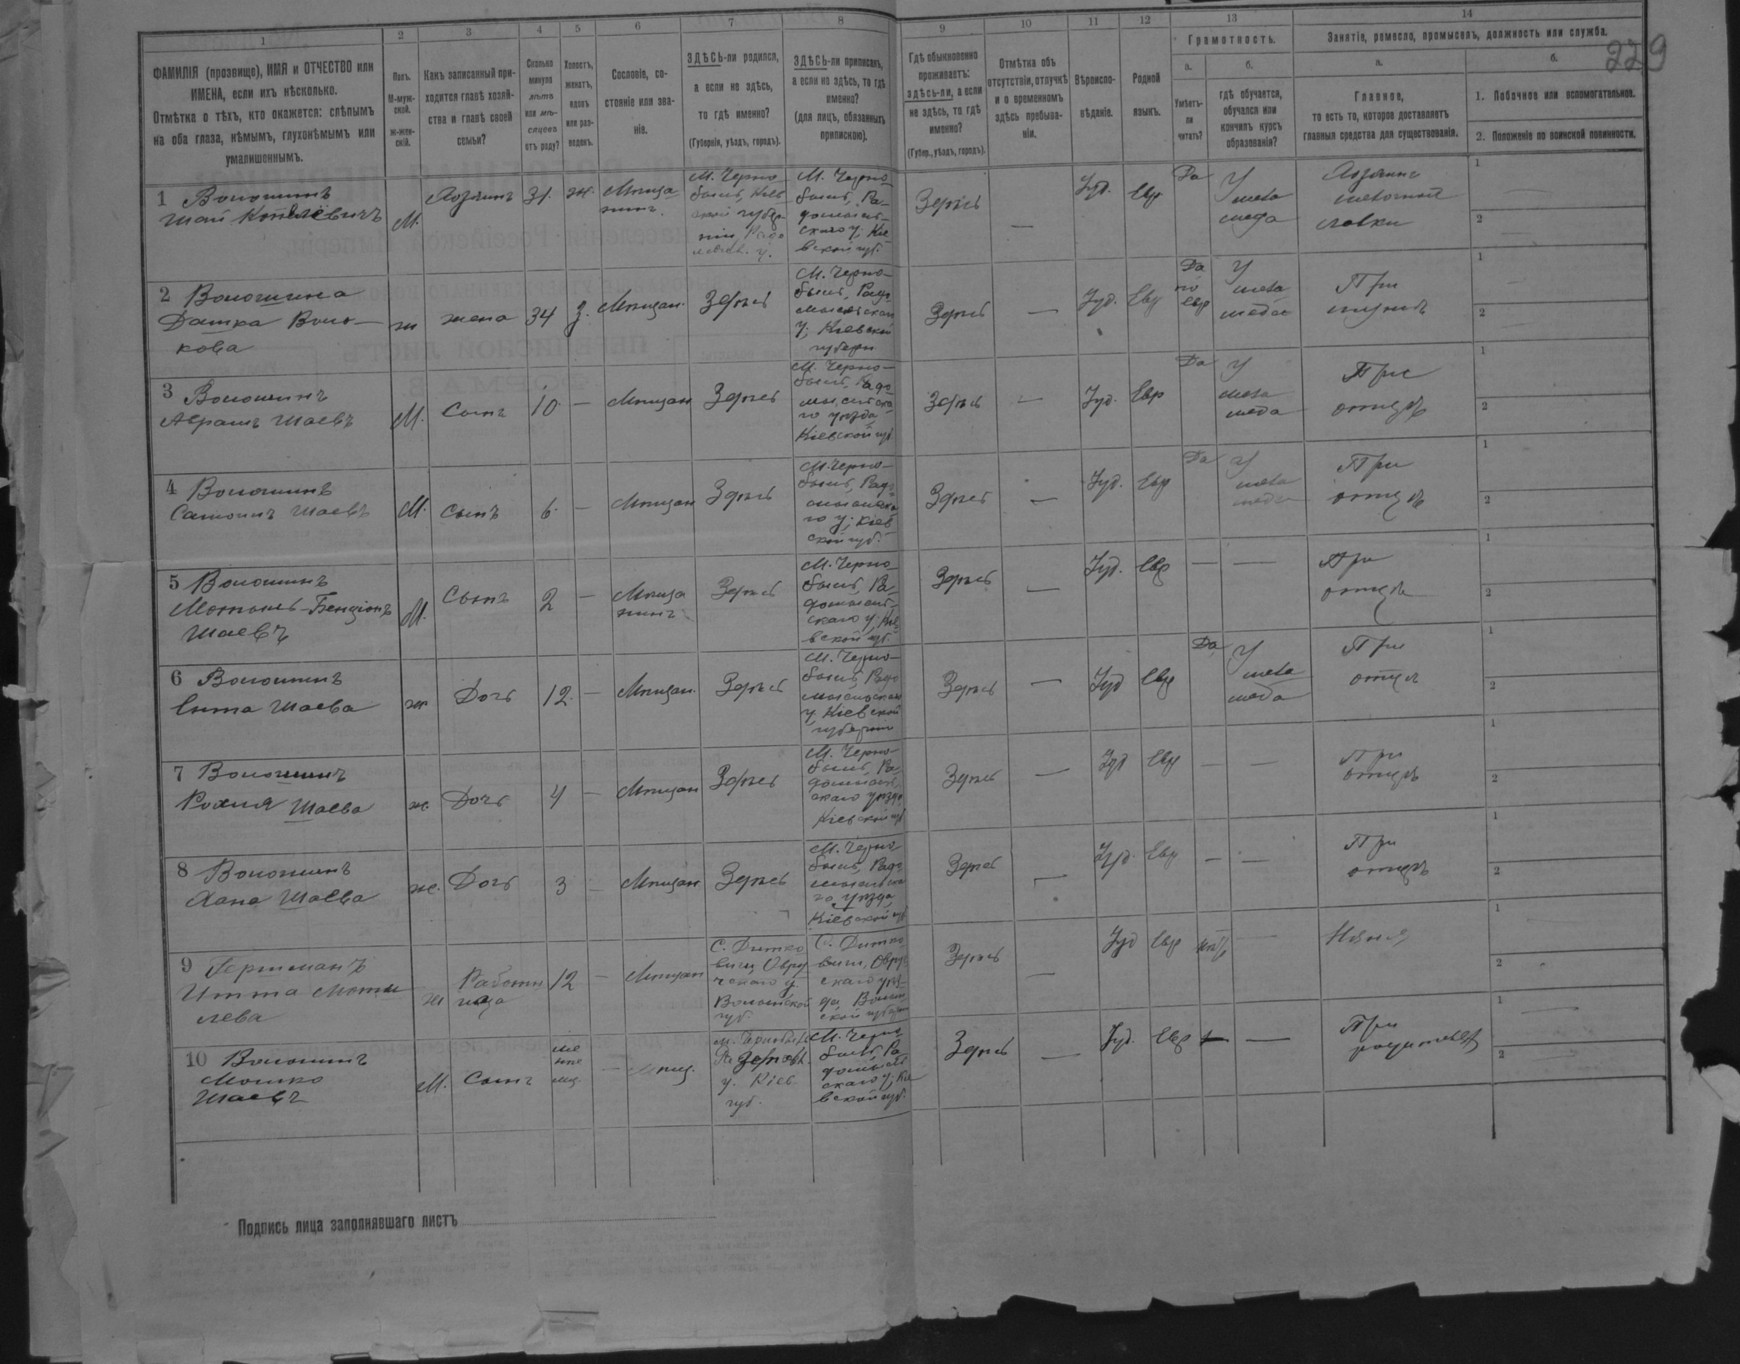 229
1
2
3
4
5
6
7
8
9
10
11
12
13
14
ФАМИЛІЯ (прозвище), ИМЯ и ОТЧЕСТВО или
ИМЕНА, если ихъ нѣсколько.
Отмѣтка о тѣхъ, кто окажется: слѣпымъ
на оба глаза, нѣмымъ, глухонѣмымъ или
умалишеннымъ.
Полъ.
М-муж-
ской.
Ж-жен-
скій.
Какъ записанный при-
ходится главѣ хозяй-
ства и главѣ своей
семьи?
Сколько
минуло
лѣтъ
или мѣ-
сяцевъ
отъ роду?
Холостъ,
женатъ,
вдовъ
или раз-
веденъ.
Сословіе, со-
стояніе или зва-
ніе.
ЗДѢСЬ-ли родился,
а если не здѣсь,
то гдѣ именно?
(Губернія, уѣздъ, городъ).
ЗДѢСЬ-ли приписанъ,
а если не здѣсь, то гдѣ
именно?
(для лицъ, обязанныхъ
припискою).
Гдѣ обыкновенно
проживаетъ:
здѣсь-ли, а если
не здѣсь, то гдѣ
именно?
(Губер., уѣздъ, городъ).
Отмѣтка объ
отсутствіи, отлучкѣ
и о временномъ
здѣсь пребыва-
ніи.
Вѣроиспо-
вѣданіе.
Родной
языкъ.
Грамотность.
а.
Умѣетъ-
ли
читать?
б.
гдѣ обучается,
обучался или
кончилъ курсъ
образованія?
Занятіе, ремесло, промыселъ, должность или служба.
а.
Главное,
то есть то, которое доставляетъ
главныя средства для существованія.
б.
1. Побочное или вспомогательное.
2. Положеніе по воинской повинности.
1 Волошинъ
Шая
М.
Хозяинъ
31.
ж.
Мѣща
нинъ.
М. Черно
быль, Кіев
ской губер
ніи, Радо
у.
М. Черно-
быль, Ра-
домысль-
скаго у. Кіе-
вской губ.
Здѣсь
—
Іуд.
Евр
Да
У
мела
меда
Хозяинъ
лавки
1
2
2 Волошина
Дашка Воль-
кова
ж
жена
34
З.
Мѣщан.
Здѣсь
М. Черно-
быль, Радо
мысльскаго
у. Кіевской
губерн
Здѣсь
—
Іуд.
Евр
Да
по
евр
У
мела
меда
При
мужѣ
1
2
3 Волошинъ
Абрамъ Шаевъ
М.
Сынъ
10
—
Мѣщан
Здѣсь
М. Черно-
быль, Радо
мысльска
го уѣзда
Кіевской губ
Здѣсь
—
Іуд.
Евр
Да
У
мела
меда
При
отцѣ
1
2
4 Волошинъ
Самоилъ Шаевъ
М.
Сынъ
6.
—
Мѣщан
Здѣсь
М. Черно-
быль, Радо
мысльска
го у; Кіев
ской губ.
Здѣсь
—
Іуд.
Евр
Да
У
мела
меда
При
отцѣ
1
2
5 Волошинъ
Мотель-Бенціонъ
Шаевъ
М.
Сынъ
2
—
Мѣща
нинъ
Здѣсь
М. Черно-
быль, Ра-
домысль-
скаго у. Кіе-
вской губ.
Здѣсь
—
Іуд.
Евр
—
—
При
отцѣ
1
2
6 Волошинъ
Ента Шаева
ж
Дочь
12.
—
Мѣщан.
Здѣсь
М. Черно-
быль, Радо
мысльскаго
у. Кіевской
губерніи
Здѣсь
—
Іуд
Евр
Да
У
мела
меда
При
отцѣ
1
2
7 Волошинъ
Рохля Шаева
ж
Дочь
4
—
Мѣщан
Здѣсь
М. Черно-
быль, Ра-
домысль-
скаго уѣзда
Кіевской губ
Здѣсь
—
Іуд
Евр
—
—
При
отцѣ
1
2
8 Волошинъ
Хана Шаева
ж.
Дочь
3
—
Мѣщан
Здѣсь
М. Черно
быль, Радо
мысльска
го уѣзда
Кіевской губ
Здѣсь
—
Іуд.
Евр
—
—
При
отцѣ
1
2
9 Герцманъ
Итта
лева
ж
Работни
ца
12
—
Мѣщан
С. Дитко
вичи Овру
чскаго у.
Волынской
губ.
С. Дитко
вичи, Овруч
скаго уѣз-
да Волын
ской губерн
Здѣсь
—
Іуд
Евр
нѣтъ
—
Няня
1
2
10 Волошинъ
Мошко
Шаевъ
М.
Сынъ
мѣс.
—
Мѣщ.
М. Чернобыль
у. Кіев
губ.
М. Черно
быль, Ра-
домысль
скаго у. Кі
вской губ.
Здѣсь
—
Іуд.
Евр
—
—
При
родителяхъ
1
2
Подпись лица заполнявшаго листъ